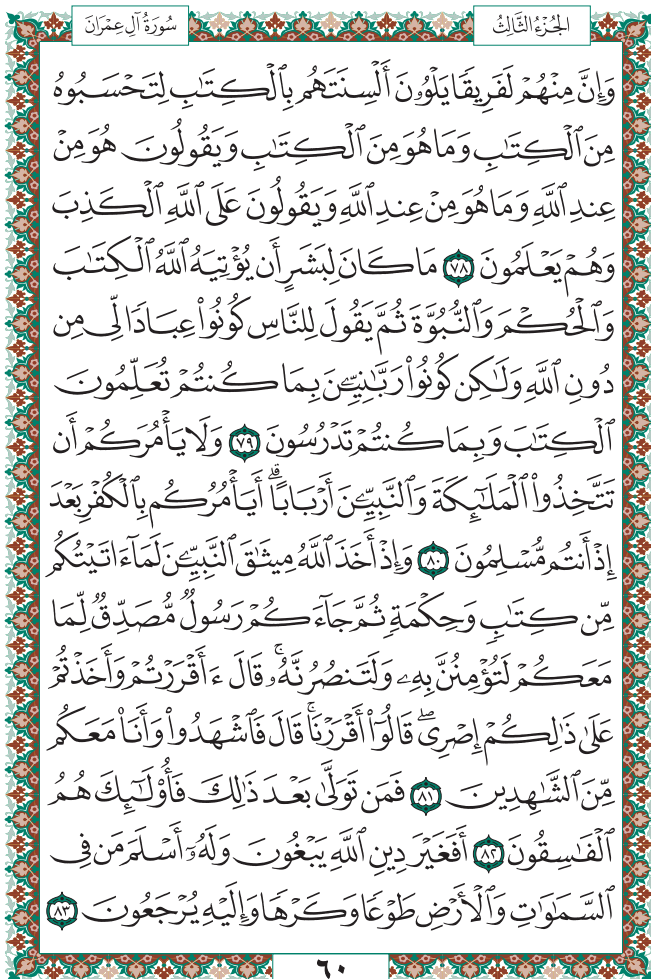 سُورَةُ آلِ عِمْرَانَ
الجُزْءُ الثَّالِثُ
وَإِنَّ مِنْهُمْ لَفَرِيقًا يَلْوُۥنَ أَلْسِنَتَهُم بِٱلْكِتَٰبِ لِتَحْسَبُوهُ
مِنَ ٱلْكِتَٰبِ وَمَا هُوَ مِنَ ٱلْكِتَٰبِ وَيَقُولُونَ هُوَ مِنْ
عِندِ ٱللَّهِ وَمَا هُوَ مِنْ عِندِ ٱللَّهِ وَيَقُولُونَ عَلَى ٱللَّهِ ٱلْكَذِبَ
وَهُمْ يَعْلَمُونَ ٧٨ مَا كَانَ لِبَشَرٍ أَن يُؤْتِيَهُ ٱللَّهُ ٱلْكِتَٰبَ
وَٱلْحُكْمَ وَٱلنُّبُوَّةَ ثُمَّ يَقُولَ لِلنَّاسِ كُونُوا۟ عِبَادًا لِّى مِن
دُونِ ٱللَّهِ وَلَٰكِن كُونُوا۟ رَبَّٰنِيِّۦنَ بِمَا كُنتُمْ تُعَلِّمُونَ
ٱلْكِتَٰبَ وَبِمَا كُنتُمْ تَدْرُسُونَ ٧٩ وَلَا يَأْمُرَكُمْ أَن
تَتَّخِذُوا۟ ٱلْمَلَٰٓئِكَةَ وَٱلنَّبِيِّۦنَ أَرْبَابًا ۗ أَيَأْمُرُكُم بِٱلْكُفْرِ بَعْدَ
إِذْ أَنتُم مُّسْلِمُونَ ٨٠ وَإِذْ أَخَذَ ٱللَّهُ مِيثَٰقَ ٱلنَّبِيِّۦنَ لَمَآ ءَاتَيْتُكُم
مِّن كِتَٰبٍ وَحِكْمَةٍ ثُمَّ جَآءَكُمْ رَسُولٌ مُّصَدِّقٌ لِّمَا
مَعَكُمْ لَتُؤْمِنُنَّ بِهِۦ وَلَتَنصُرُنَّهُۥ ۚ قَالَ ءَأَقْرَرْتُمْ وَأَخَذْتُمْ
عَلَىٰ ذَٰلِكُمْ إِصْرِى ۖ قَالُوٓا۟ أَقْرَرْنَا ۚ قَالَ فَٱشْهَدُوا۟ وَأَنَا۠ مَعَكُم
مِّنَ ٱلشَّٰهِدِينَ ٨١ فَمَن تَوَلَّىٰ بَعْدَ ذَٰلِكَ فَأُو۟لَٰٓئِكَ هُمُ
ٱلْفَٰسِقُونَ ٨٢ أَفَغَيْرَ دِينِ ٱللَّهِ يَبْغُونَ وَلَهُۥٓ أَسْلَمَ مَن فِى
ٱلسَّمَٰوَٰتِ وَٱلْأَرْضِ طَوْعًا وَكَرْهًا وَإِلَيْهِ يُرْجَعُونَ ٨٣
٦٠